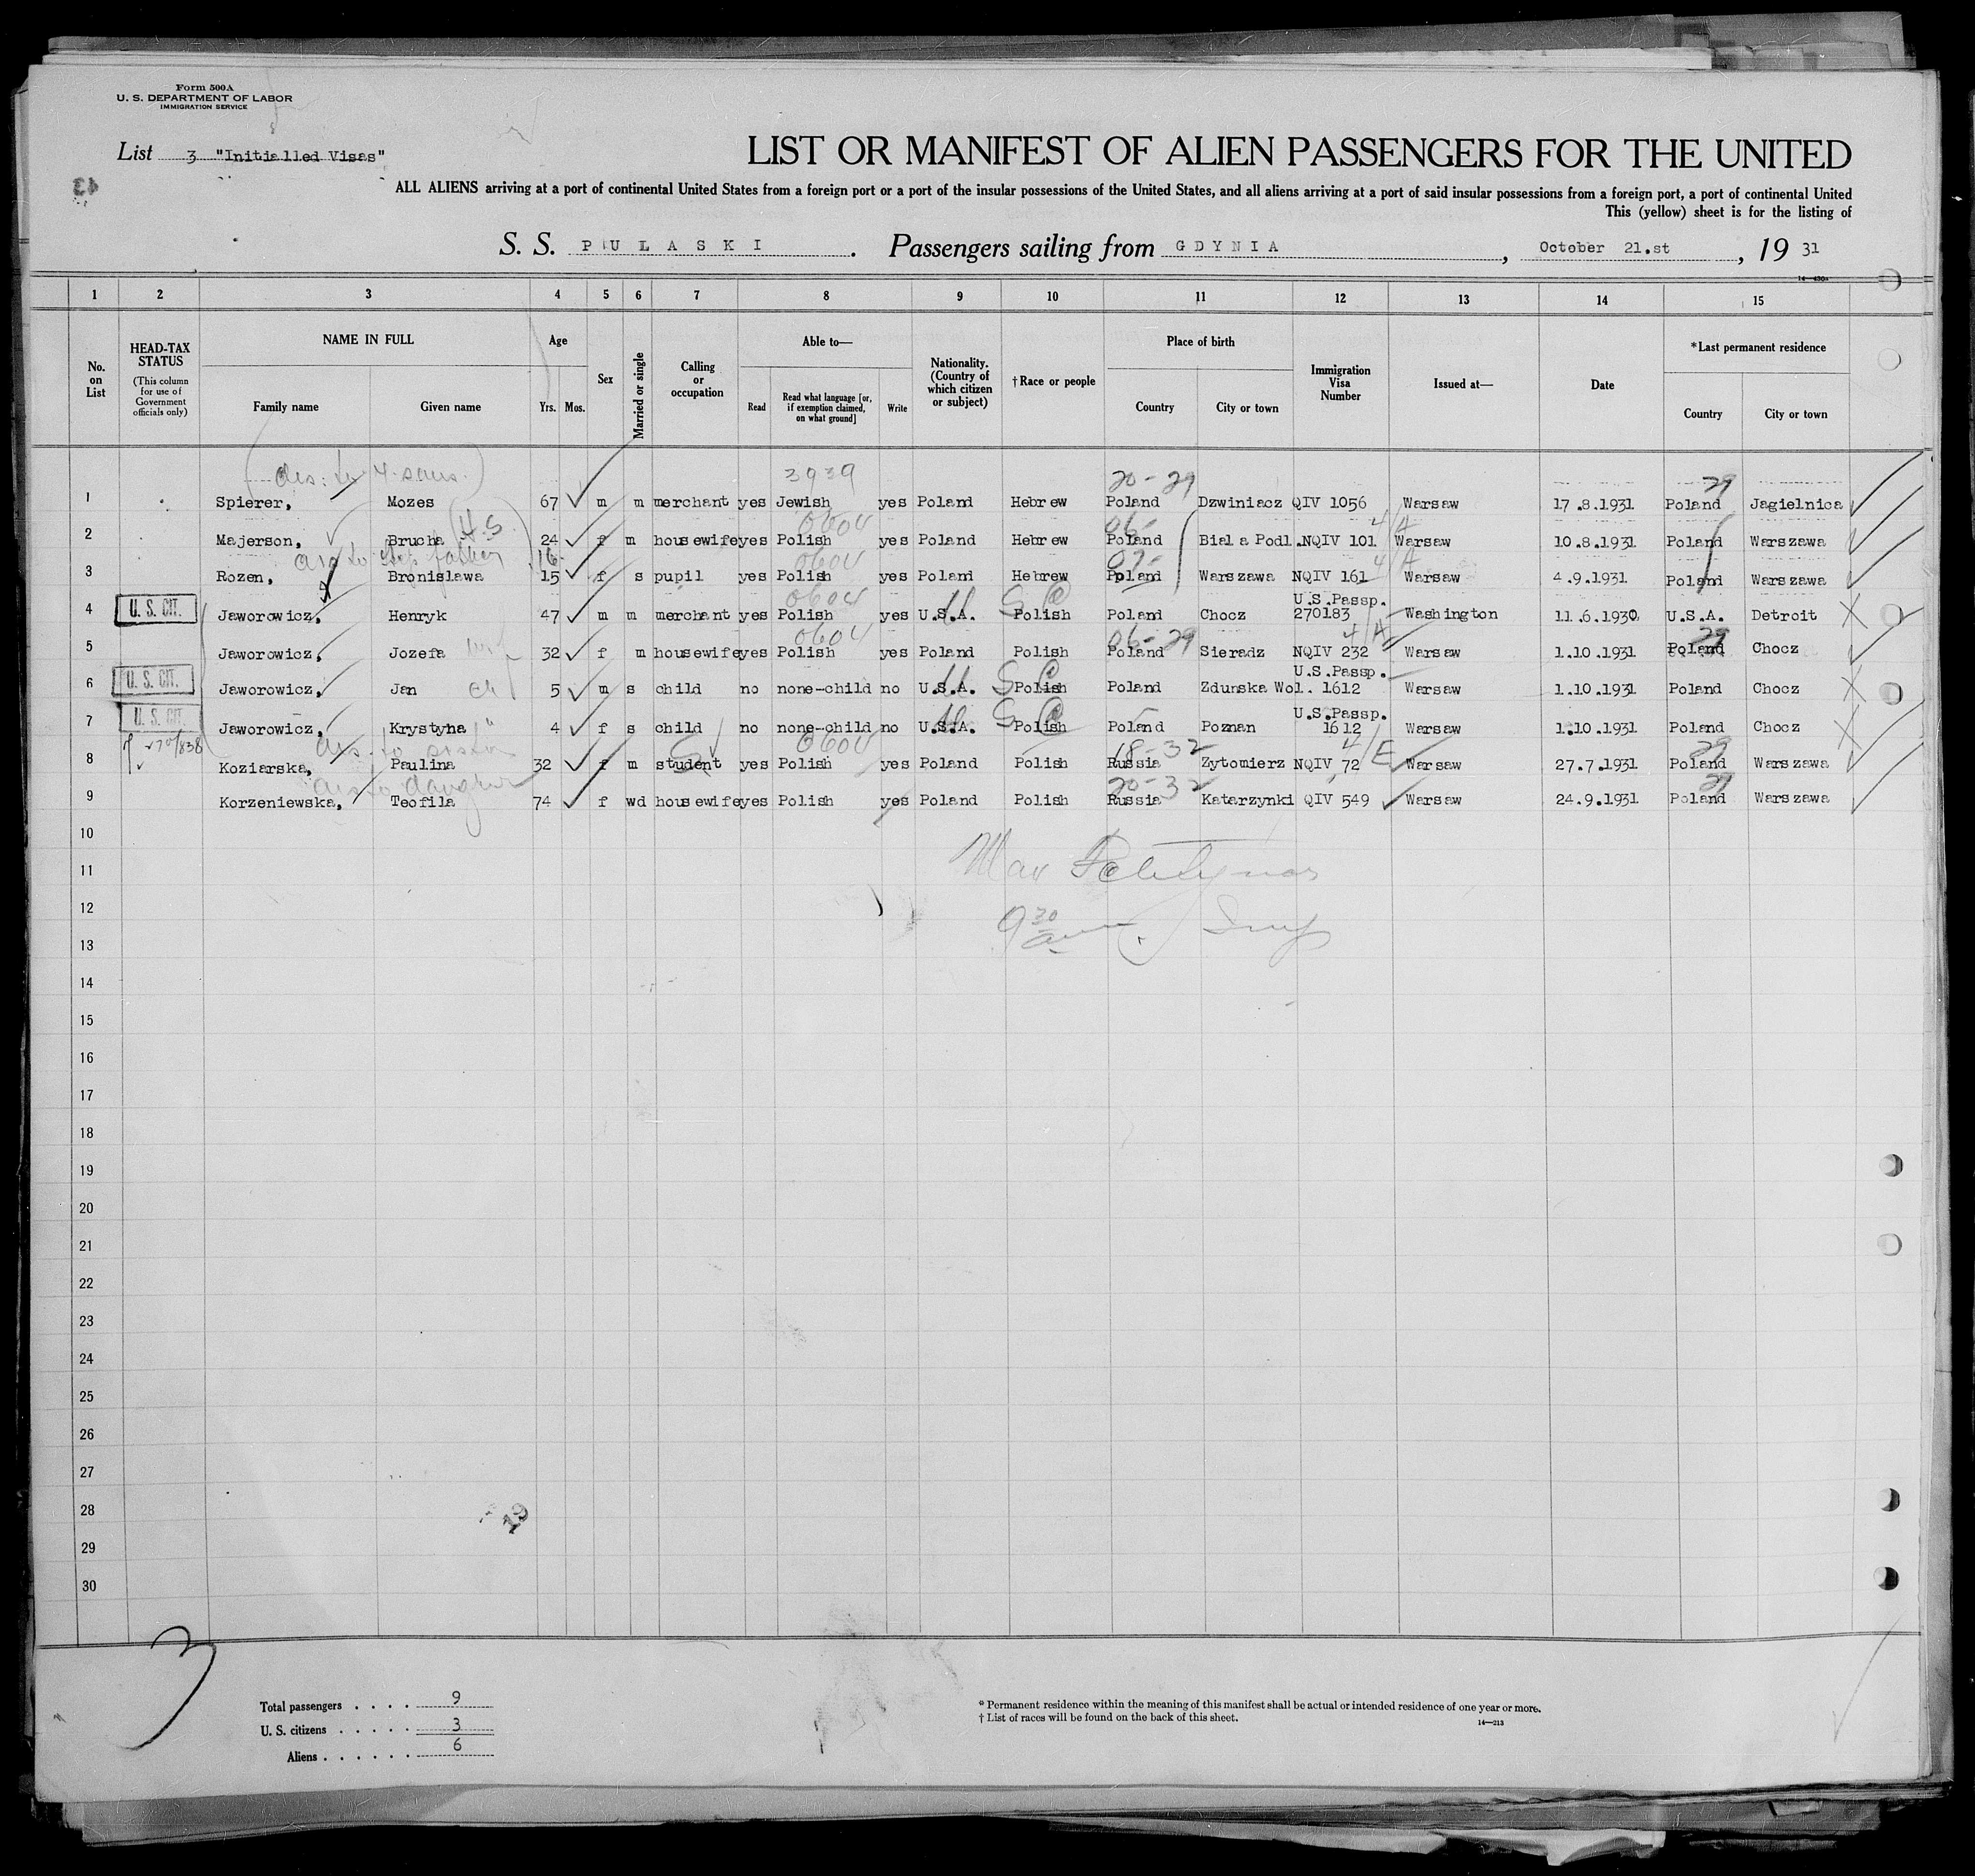 Form 500A
U. S. DEPARTMENT OF LABOR
IMMIGRATION SERVICE
List 3 "Initialled Visas"
LIST OR MANIFEST OF ALIEN PASSENGERS FOR THE UNITED
ALL ALIENS arriving at a port of continental United States from a foreign port or a port of the insular possessions of the United States, and all aliens arriving at a port of said insular possessions from a foreign port, a port of continental United
This (yellow) sheet is for the listing of
S. S. PULASKI. Passengers sailing from GDYNIA, October 21.st, 19 31
14—430a
1 2 3 4 5 6 7 8 9 10 11 12 13 14 15
No. on List
HEAD-TAX STATUS (This column for use of Government officials only)
NAME IN FULL
Family name Given name
Age
Yrs. Mos.
Sex
Married or single
Calling or occupation
Able to—
Read
Read what language [or, if exemption claimed, on what ground]
Write
Nationality. (Country of which citizen or subject)
†Race or people
Place of birth
Country City or town
Immigration Visa Number
Issued at—
Date
*Last permanent residence
Country City or town
3939 20-29 29
1 Spierer, Mozes 67 m m merchant yes Jewish yes Poland Hebrew Poland Dzwiniacz QIV 1056 Warsaw 17.8.1931 Poland Jagielnica
H.S 0604 06- 4/A
2 Majerson, Brucha 24 f m housewife yes Polish yes Poland Hebrew Poland Biala Podl. NQIV 101 Warsaw 10.8.1931 Poland Warszawa
step father 16 0604 07- 4/A
3 Rozen, Bronislawa 15 f s pupil yes Polish yes Poland Hebrew Poland Warszawa NQIV 161 Warsaw 4.9.1931 Poland Warszawa
0604 U.S.Passp.
4 U. S. CIT. Jaworowicz, Henryk 47 m m merchant yes Polish yes U.S.A. Polish Poland Chocz 270183 Washington 11.6.1930 U.S.A. Detroit
0604 06-29 4/A 29
5 Jaworowicz, Jozefa 32 f m housewife yes Polish yes Poland Polish Poland Sieradz NQIV 232 Warsaw 1.10.1931 Poland Chocz
U.S.Passp.
6 U. S. CIT. Jaworowicz, Jan ch 5 m s child no none-child no U.S.A. Polish Poland Zdunska Wol. 1612 Warsaw 1.10.1931 Poland Chocz
U.S.Passp.
7 U. S. CIT. Jaworowicz, Krystyna " 4 f s child no none-child no U.S.A. Polish Poland Poznan 1612 Warsaw 1.10.1931 Poland Chocz
sister 0604 18-32 4/E 29
8 Koziarska, Paulina 32 f m student yes Polish yes Poland Polish Russia Zytomierz NQIV 72 Warsaw 27.7.1931 Poland Warszawa
to daughter 20-32 29
9 Korzeniewska, Teofila 74 f wd housewife yes Polish yes Poland Polish Russia Katarzynki QIV 549 Warsaw 24.9.1931 Poland Warszawa
10
11
12
9 30
13
14
15
16
17
18
19
20
21
22
23
24
25
26
27
28
29
30
3
Total passengers . . . . 9
U. S. citizens . . . . . 3
Aliens . . . . . . 6
* Permanent residence within the meaning of this manifest shall be actual or intended residence of one year or more.
† List of races will be found on the back of this sheet.
14—213